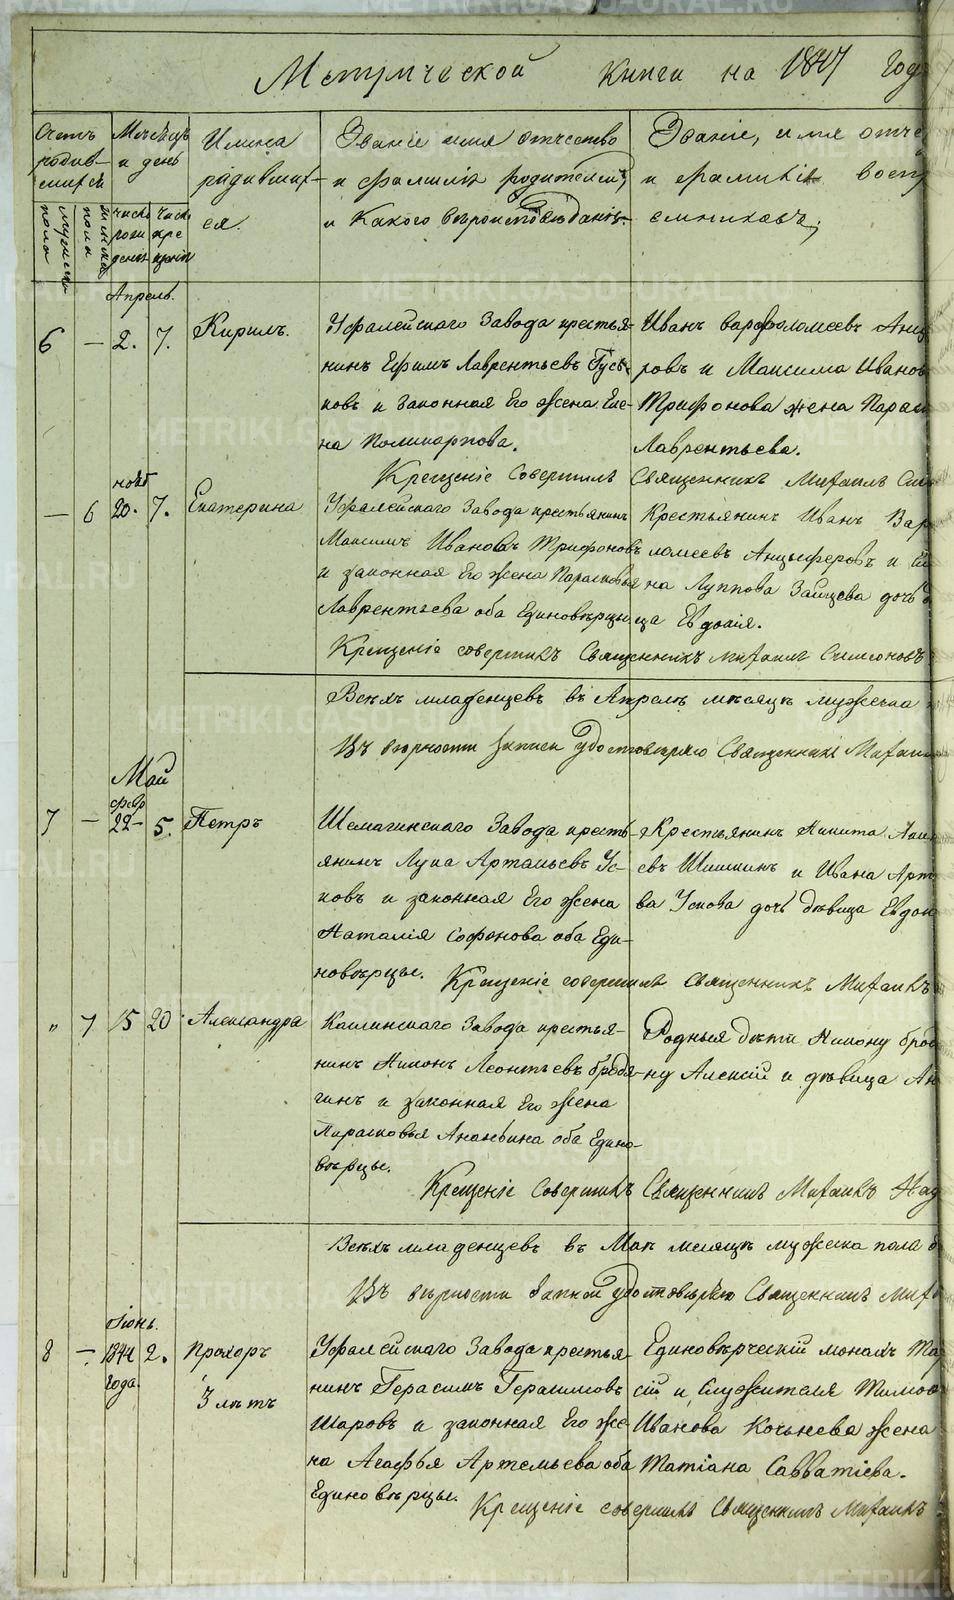 Метрической Книги на 1847 Годъ
Счетъ родив-шихся
Месецъ и день
Имена родивших-ся.
Званіе имя отчество и фамилія родителей, и Какого вероисповеданія.
Званіе, имя отче и фамилія воспр емниковъ;
мужеска пола
женска пола
число рожденія
число крещенія
Апрель.
6 — 2. 7. Кирилъ.
Уфалейскаго Завода крестья-
нинъ Ефимъ Лаврентьевъ Гусь-
ковъ и законная Его жена Еле-
на Поликарпова.
Иванъ варфоломеевъ Анц
ровъ и Максима Иванов
Трифонова жена Параск
Лаврентьева.
Крещеніе Совершилъ Священникъ Михаилъ Сим
нояб
— 6 20. 7. Екатерина
Уфалейскаго Завода крестьянинъ
Максимъ Ивановъ Трифоновъ
и законная Его жена Параскевья
Лаврентьева оба Единоверцы
Крестьянинъ Иванъ Вар
ломеевъ Анцыферовъ и Е
на Луппова Зайцева дочь д
ца Евдокія.
Крещеніе совершилъ Священникъ Михаилъ Симоновъ
Всехъ младенцевъ въ Апреле месяце мужеска
Въ верности записи удостоверяю Священникъ Михаи
Май
февр
7 — 22 – 5. Петръ
Шемагинскаго Завода кресть-
янинъ Лука Артамьевъ Ус-
ковъ и законная Его жена
Наталія Софонова оба Еди-
новерцы.
Крестьянинъ Никита
евъ Шишкинъ и Ивана Арт
ва Ускова дочь девица Евдок
Крещеніе совершилъ Священникъ Михаилъ
" 7 15 20 Александра
Каслинскаго Завода крестья-
нинъ Никонъ Леонтьевъ бродя-
гинъ и законная Его жена
Парасковья Ананьина оба Едино-
верцы.
Родныя дети Никону брод
ну Алексій и девица Ан
Крещеніе Совершилъ Священникъ Михаилъ
Всехъ младенцевъ въ Мае месяце мужеска пола
Въ верности записи удостоверяю Священникъ Миха
Іюнь.
8 — 1844 года. 2. Прохоръ
3 летъ
Уфалейскаго Завода крестья-
нинъ Герасимъ Герасимовъ
Шаровъ и законная Его же-
на Агафья Артемьева оба
Единоверцы.
Единоверческій монахъ Та
сій и Служителя Тимо
Иванова Кочнева жена
Татіана Савватіева.
Крещеніе совершилъ Священникъ Михаилъ
METRIKI.GASO-URAL.RU